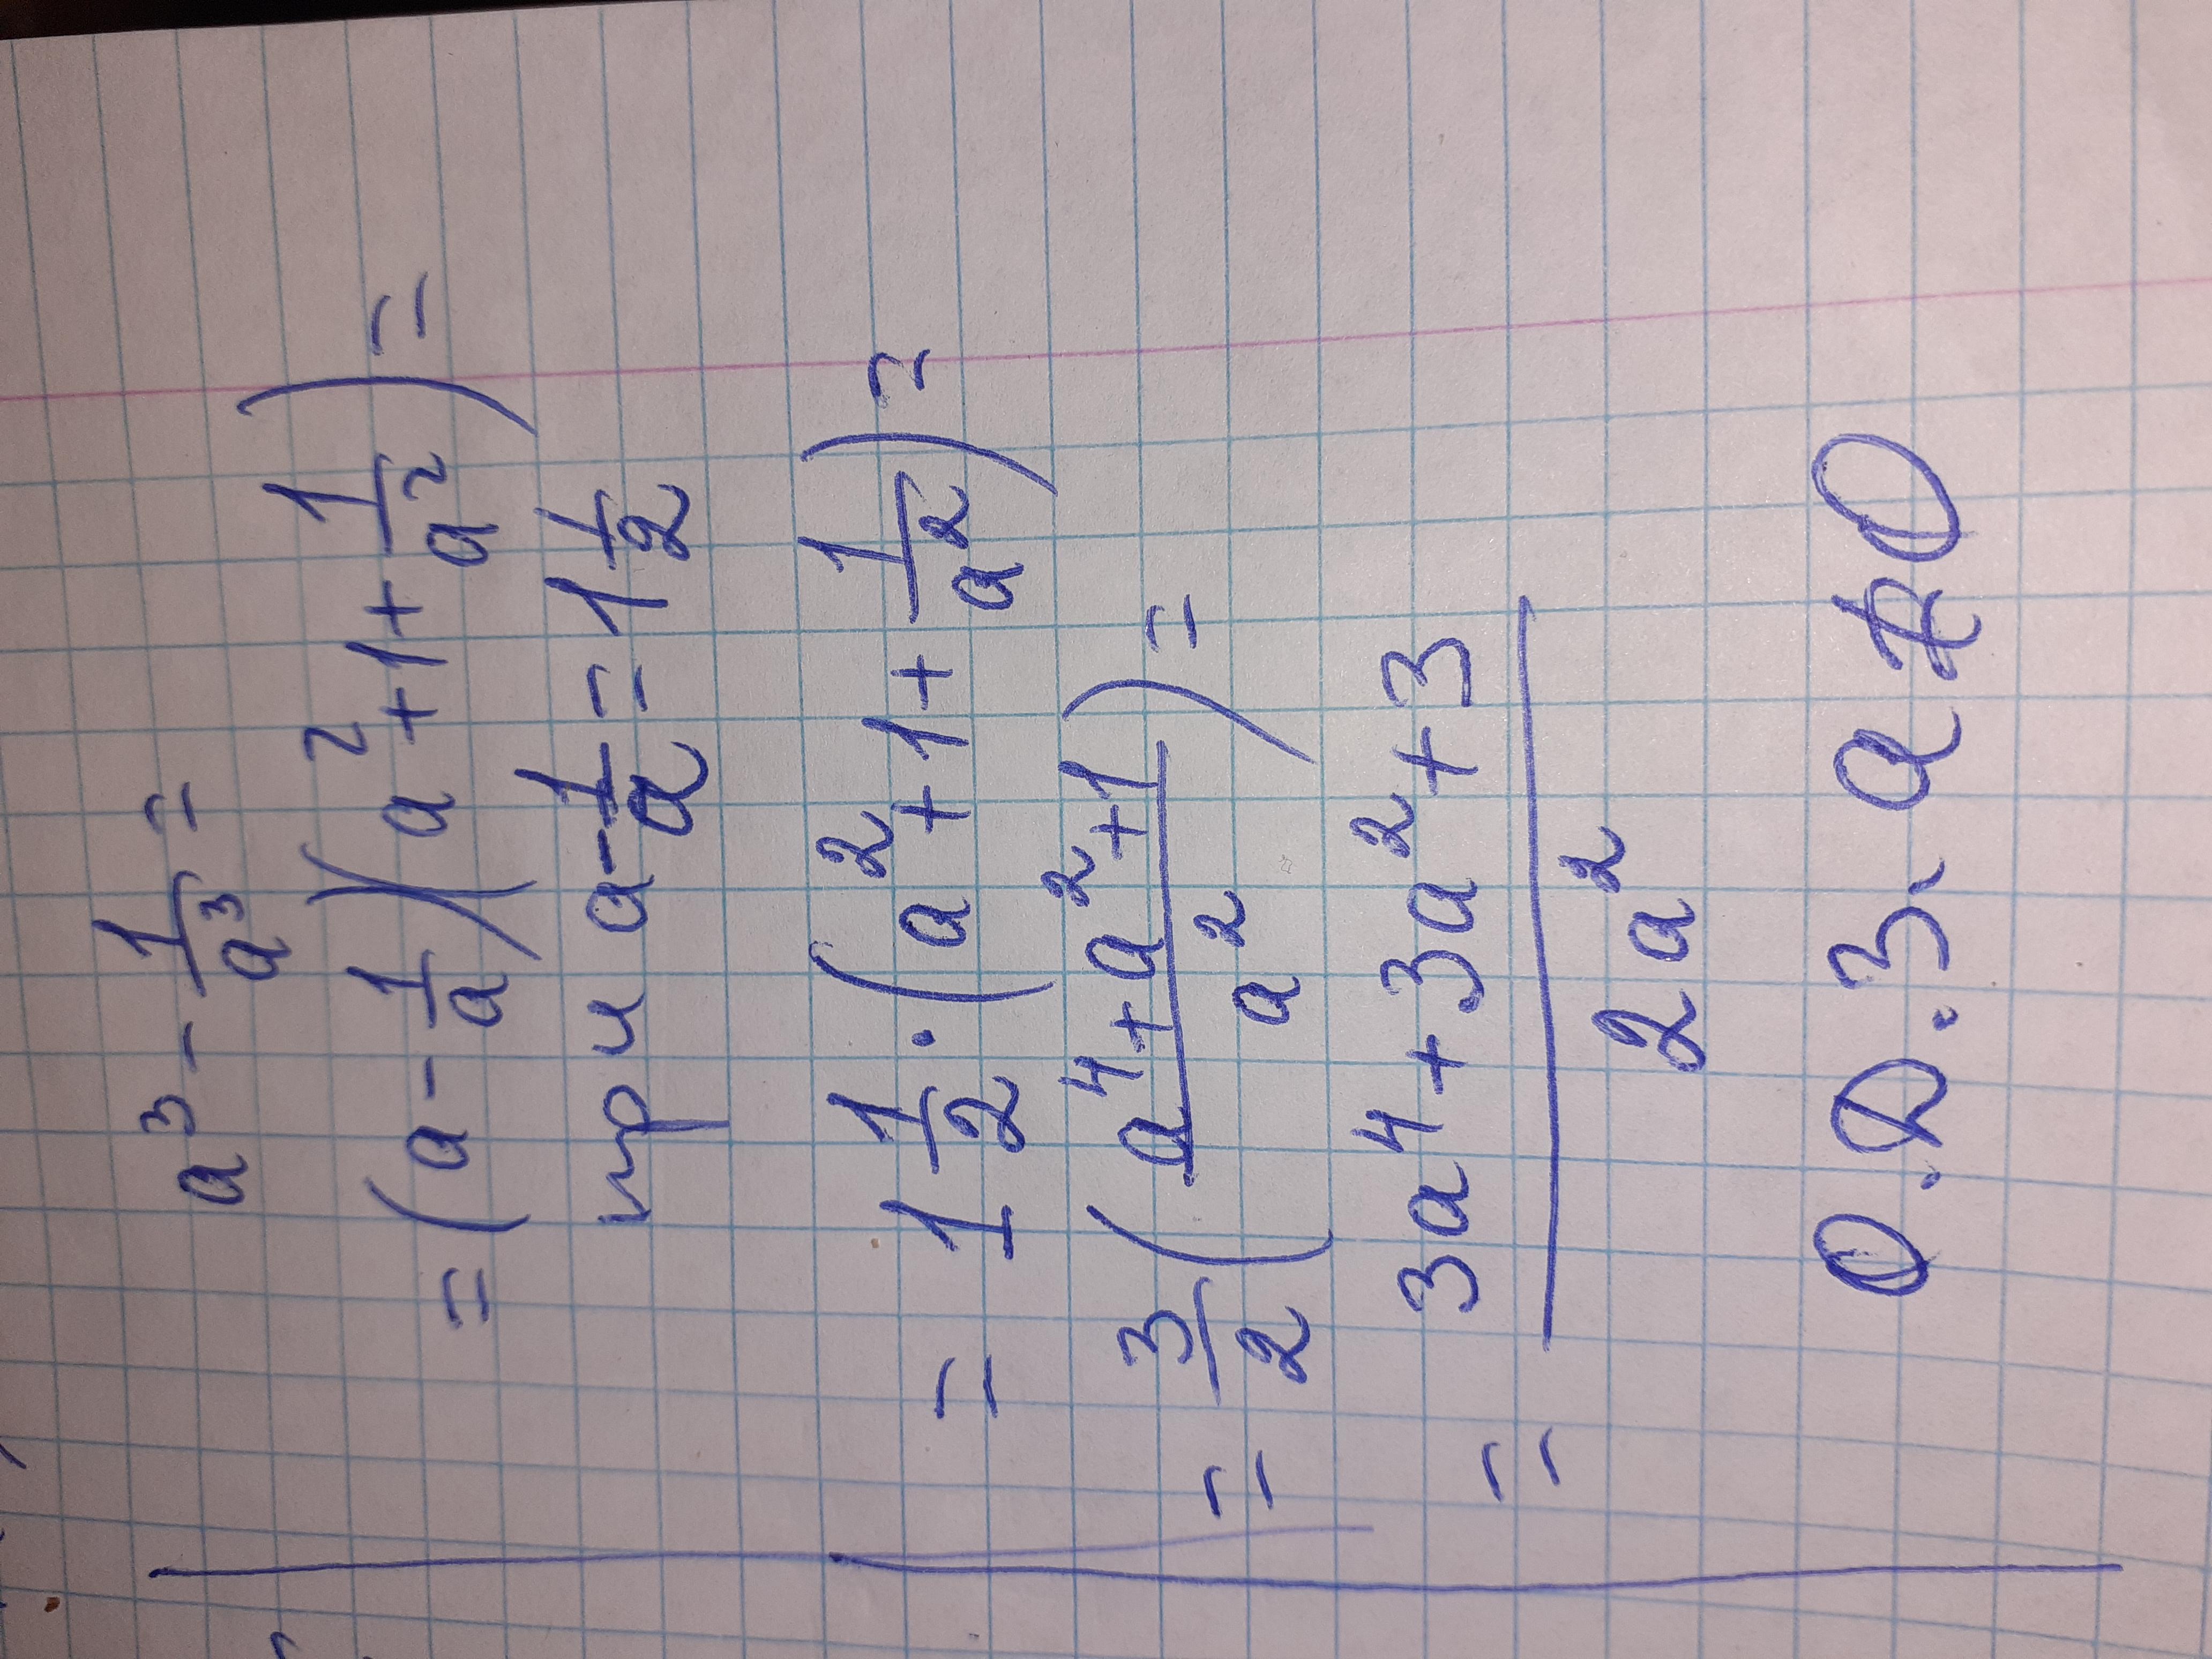 a³ - 1/a³ =
= (a - 1/a)(a² + 1 + 1/a²) =
при a - 1/a = 1 1/2
= 1 1/2 · (a² + 1 + 1/a²) =
= 3/2 ((a⁴ + a² + 1)/a²) =
= (3a⁴ + 3a² + 3)/(2a²)
О.Д.З. a ≠ 0